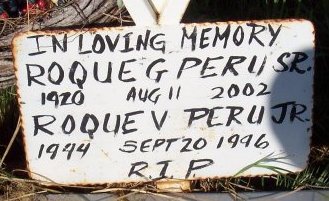 IN LOVING MEMORY
ROQUE G PERU SR.
1920 AUG 11 2002
ROQUE V PERU JR.
1944 SEPT 20 1996
R.I.P